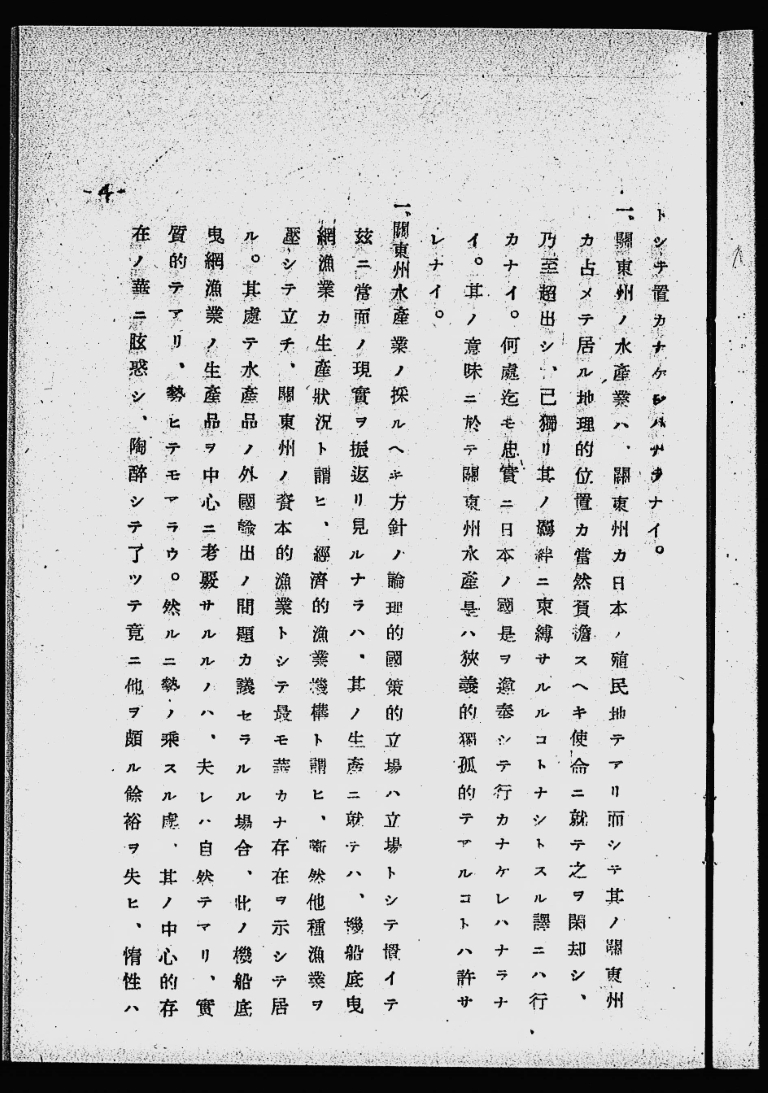 トシテ置カナケレハナラナイ。
一、關東州ノ水產業ハ、關東州カ日本ノ殖民地テアリ而シテ其ノ關東州
カ占メテ居ル地理的位置カ當然負擔スヘキ使命ニ就テ之ヲ閑却シ、
乃至超出シ、己獨リ其ノ羈絆ニ束縛サルルコトナシトスル譯ニハ行
カナイ。何處迄モ忠實ニ日本ノ國是ヲ遵奉シテ行カナケレハナラナ
イ。其ノ意味ニ於テ關東州水產是ハ狹義的獨孤的テアルコトハ許サ
レナイ。
一、關東州水產業ノ採ルヘキ方針ノ論理的國策的立場ハ立場トシテ措イテ
玆ニ當面ノ現實ヲ振返リ見ルナラハ、其ノ生產ニ就テハ、機船底曳
網漁業カ生產狀況ト謂ヒ、經濟的漁業機構ト謂ヒ、嶄然他種漁業ヲ
壓シテ立チ、關東州ノ資本的漁業トシテ最モ華カナ存在ヲ示シテ居
ル。其處テ水產品ノ外國輸出ノ問題カ議セラルル場合、此ノ機船底
曳網漁業ノ生產品ヲ中心ニ考覈サルルノハ、夫レハ自然テアリ、實
質的テアリ、勢ヒテモアラウ。然ルニ勢ノ乘スル處、其ノ中心的存
在ノ華ニ眩惑シ、陶醉シテ了ツテ竟ニ他ヲ顧ル餘裕ヲ失ヒ、惰性ハ
-4-